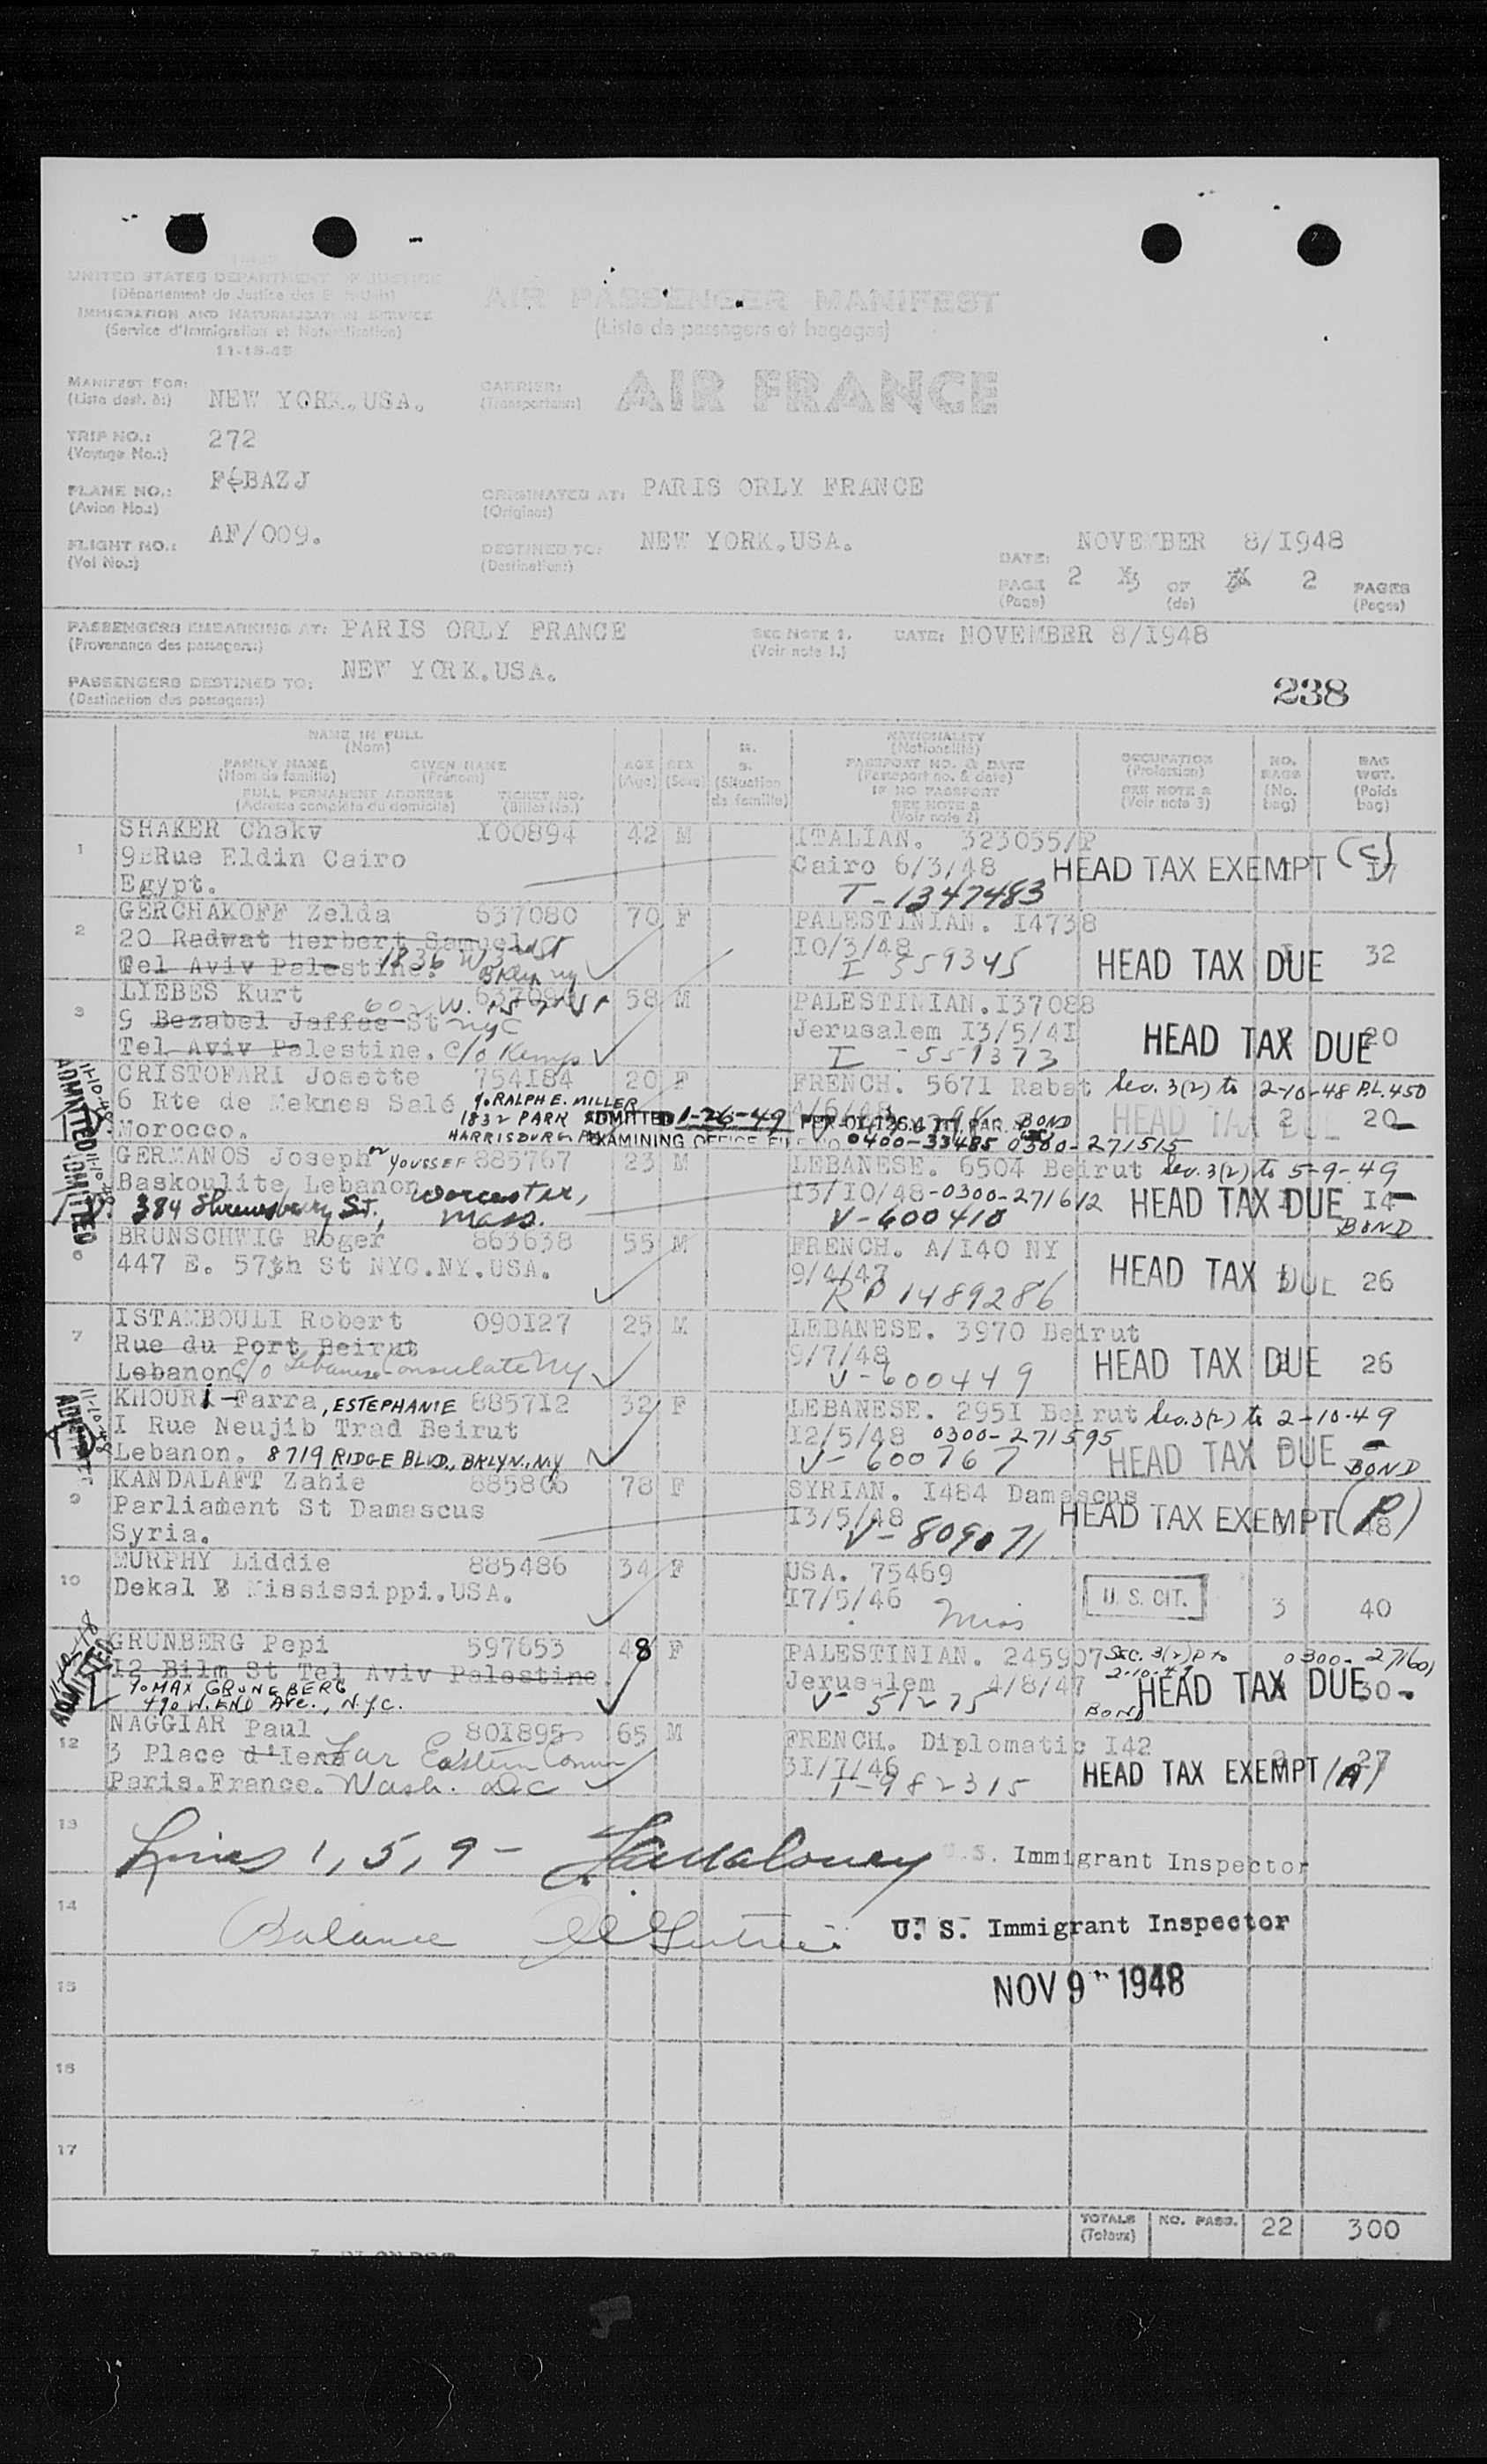 UNITED STATES DEPARTMENT OF JUSTICE
(Département de Justice des Etats-Unis)
IMMIGRATION AND NATURALIZATION SERVICE
(Service d'Immigration et Naturalisation)
11-18-48
AIR PASSENGER MANIFEST
(Liste de passagers et bagages)
MANIFEST FOR: NEW YORK.USA.
(Liste dest. à:)
CARRIER: AIR FRANCE
(Transporteur:)
TRIP NO.: 272
(Voyage No.:)
PLANE NO.: F-BAZJ
(Avion No.:)
ORIGINATED AT: PARIS ORLY FRANCE
(Origine:)
FLIGHT NO.: AF/009.
(Vol No.:)
DESTINED TO: NEW YORK.USA.
(Destination:)
DATE: NOVEMBER 8/I948
PAGE 2 OF 2 PAGES
(Page) (de) (Pages)
PASSENGERS EMBARKING AT: PARIS ORLY FRANCE
(Provenance des passagers:)
SEE NOTE 1. DATE: NOVEMBER 8/I948
(Voir note 1.)
PASSENGERS DESTINED TO: NEW YORK.USA.
(Destination des passagers:)
238
NAME IN FULL
(Nom)
FAMILY NAME GIVEN NAME
(Nom de famille) (Prénom)
FULL PERMANENT ADDRESS TICKET NO.
(Adresse complète du domicile) (Billet No.)
AGE
(Age)
SEX
(Sexe)
M.
S.
(Situation
de famille)
NATIONALITY
(Nationalité)
PASSPORT NO. & DATE
(Passeport no. & date)
IF NO PASSPORT
SEE NOTE 2
(Voir note 2)
OCCUPATION
(Profession)
SEE NOTE 3
(Voir note 3)
NO.
BAGS
(No.
bag)
BAG
WGT.
(Poids
bag)
1 SHAKER Chakv I00894 42 M ITALIAN. 323055/P
9BRue Eldin Cairo Cairo 6/3/48 HEAD TAX EXEMPT (C) I7
Egypt. T-1347483
2 GERCHAKOFF Zelda 637080 70 F PALESTINIAN. I4738
20 Radwat Herbert Samuel I0/3/48 HEAD TAX DUE 32
Tel Aviv Palestine. 1836 W 3rd St Bklyn ny I 559345
3 LIEBES Kurt 58 M PALESTINIAN.I37088
9 Bezabel Jaffee St NYC Jerusalem I3/5/4I HEAD TAX DUE 20
Tel Aviv Palestine. c/o Kemp I-559373
ADMITTED 11-10-48
CRISTOFARI Josette 754I84 20 F FRENCH. 567I Rabat Sec. 3(2) to 2-10-48 P.L. 450
6 Rte de Meknes Salé c/o RALPH E. MILLER HEAD TAX DUE 2 20
Morocco. 1832 PARK HARRISBURG PA ADMITTED 1-26-49 BOND
EXAMINING OFFICE FILE NO 0400-33485 0300-271515
ADMITTED 11-10-48
GERMANOS Joseph or YOUSSEF 885767 23 M LEBANESE. 6504 Beirut Sec. 3(2) to 5-9-49
Baskoulite Lebanon I3/I0/48 -0300-271612 HEAD TAX DUE I4
384 Shrewsbury St., Worcester, Mass. V-600410 BOND
6 BRUNSCHWIG Roger 863638 55 M FRENCH. A/I40 NY
447 E. 57th St NYC.NY.USA. 9/4/47 HEAD TAX DUE 26
RP 1489286
7 ISTAMBOULI Robert 090I27 25 M LEBANESE. 3970 Beirut
Rue du Port Beirut 9/7/48 HEAD TAX DUE 26
Lebanon. c/o Lebanese Consulate NY V-600449
ADMITTED 11-10-48
KHOURI Farra, ESTEPHANIE 8857I2 32 F LEBANESE. 295I Beirut Sec. 3(2) to 2-10-49
I Rue Neujib Trad Beirut I2/5/48 0300-271595 HEAD TAX DUE
Lebanon. 8719 RIDGE BLVD., BKLYN. NY V-600767 BOND
9 KANDALAFT Zahie 885806 78 F SYRIAN. I484 Damascus
Parliament St Damascus I3/5/48 HEAD TAX EXEMPT (P) 48
Syria. V-809071
10 MURPHY Liddie 885486 34 F USA. 75469
Dekal B Mississippi.USA. I7/5/46 Miss U. S. CIT. 3 40
ADMITTED
GRUNBERG Pepi 597653 48 F PALESTINIAN. 245907 SEC. 3(2) to 0300-271601
I2 Bilm St Tel Aviv Palestine. Jerusalem 4/8/47 2-10-49 HEAD TAX DUE 30
c/o MAX GRUNEBERG 490 W. END AVE., N.Y.C. V-51275 BOND
12 NAGGIAR Paul 80I895 65 M FRENCH. Diplomatic I42
3 Place d'Iena Far Eastern Comm 3I/7/46 HEAD TAX EXEMPT (A) 27
Paris.France. Wash. DC I-982315
13 Lines 1, 5, 9 - U.S. Immigrant Inspector
14 Balance U. S. Immigrant Inspector
15 NOV 9 1948
16
17
TOTALS NO. PASS. 22 300
(Totaux)